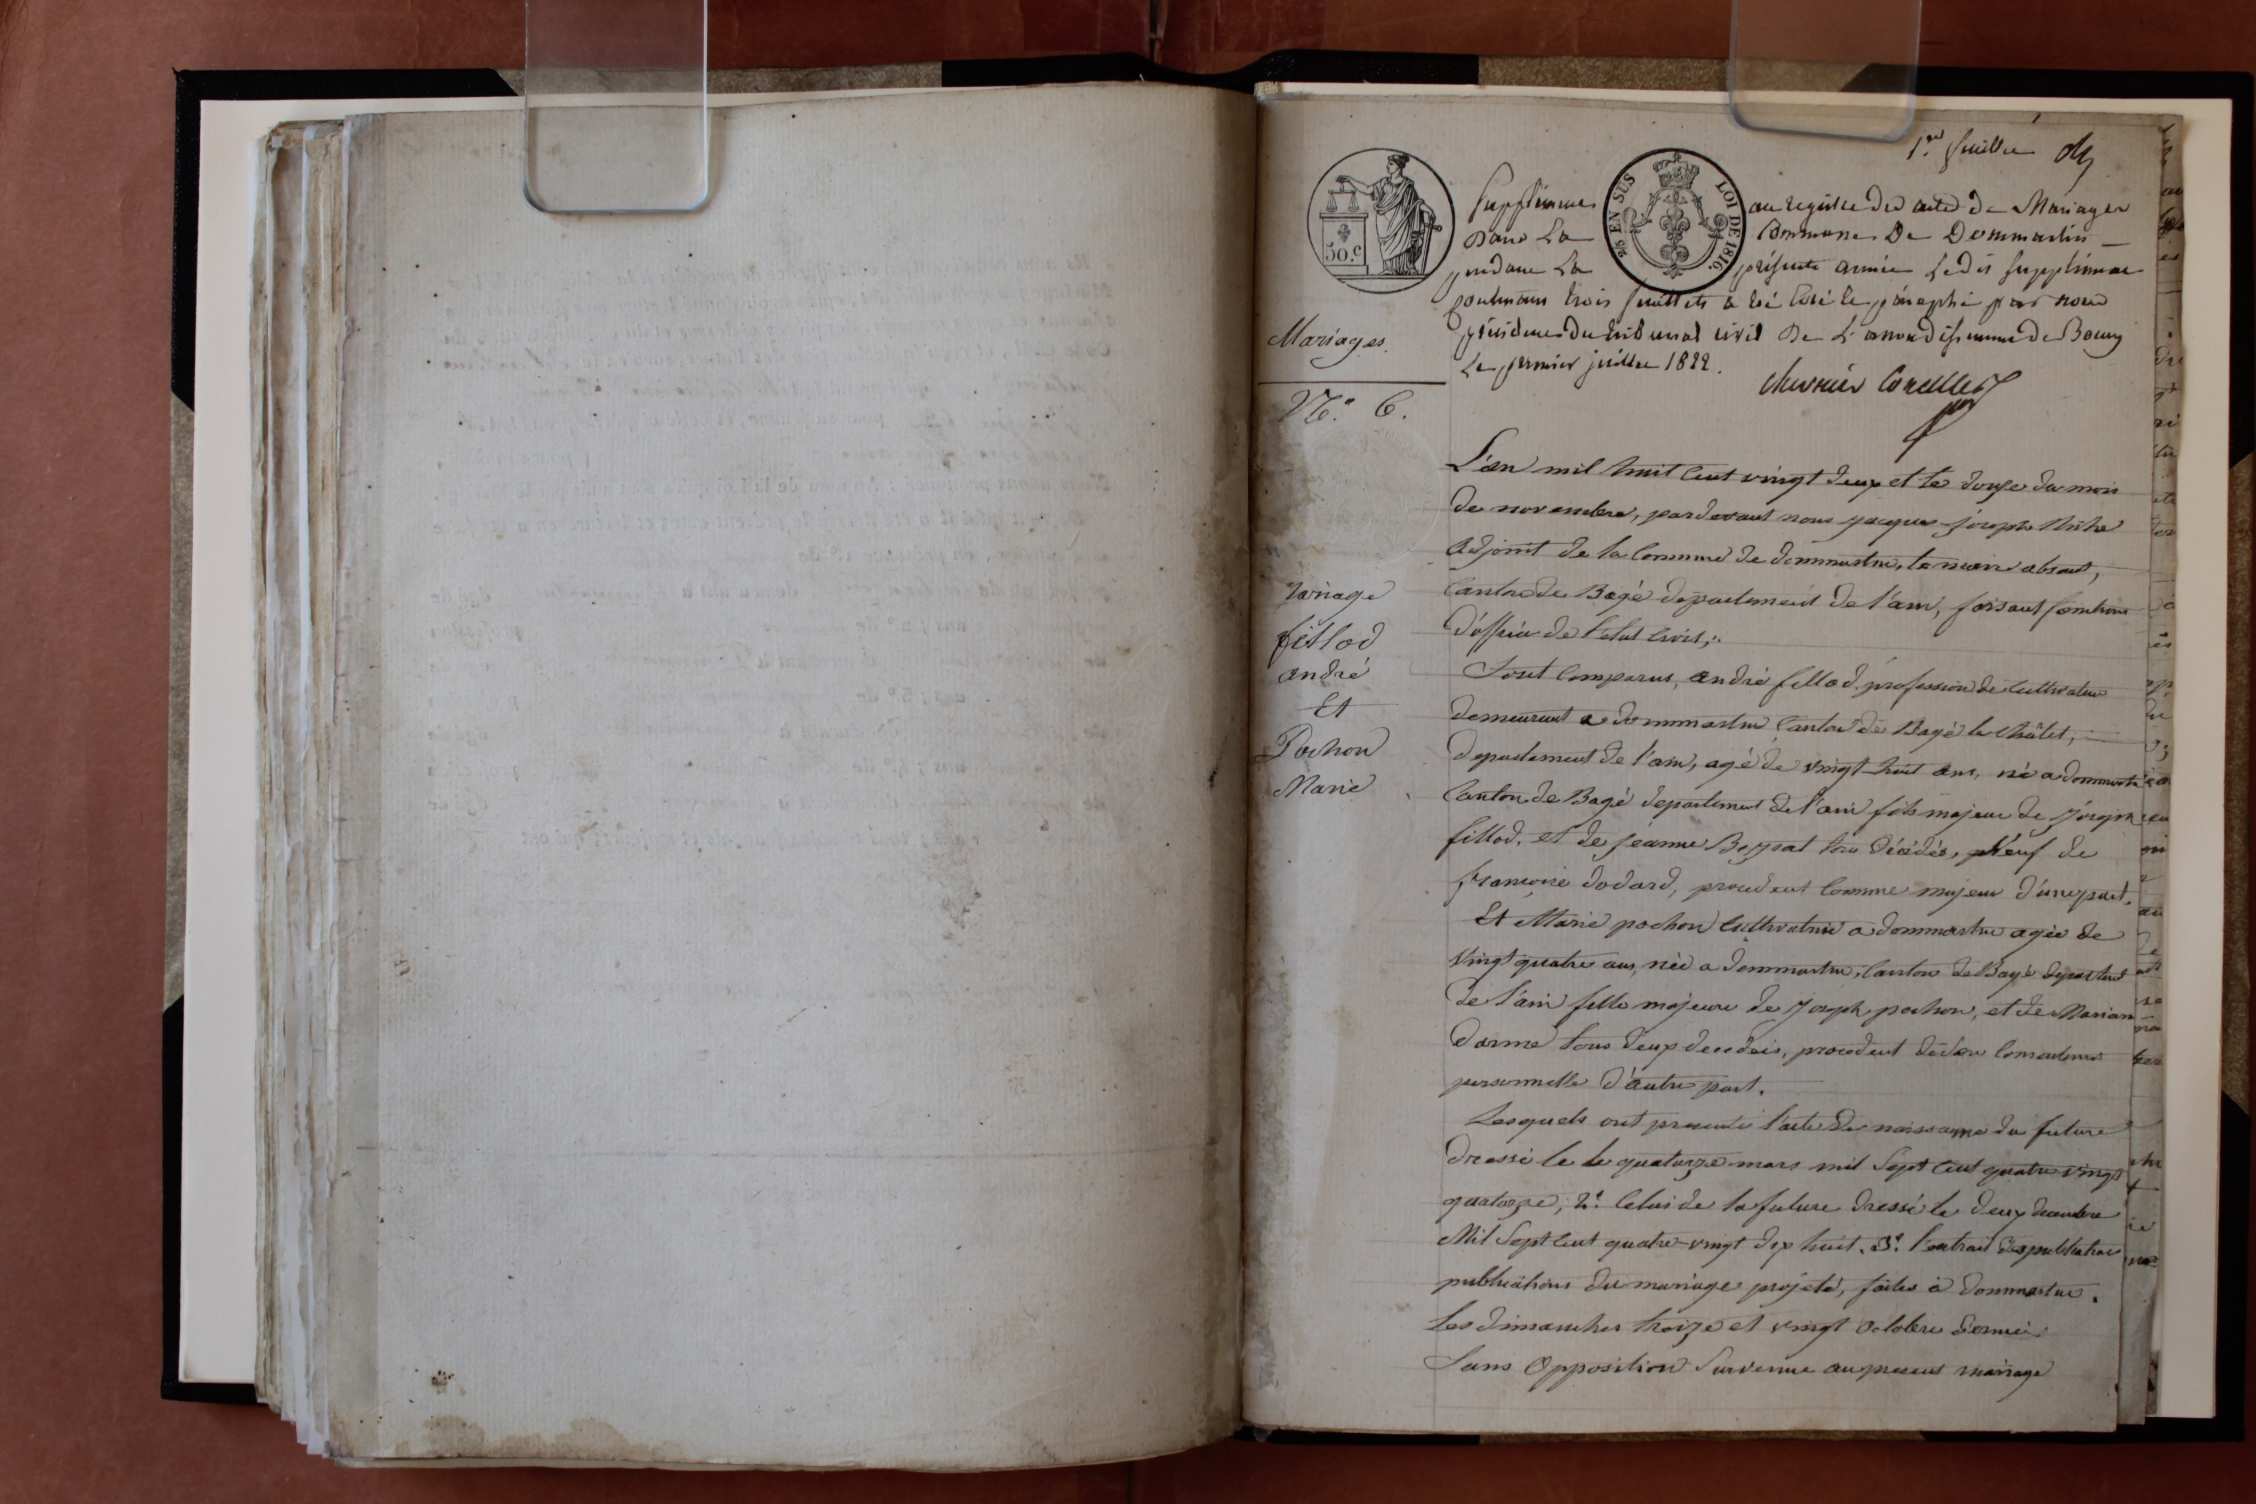 1.er feuillet
50.c
25 EN SUS LOI DE 1816.
Supplément au registre des actes de Mariages
dans la Commune De Dommartin
pendant la présente année Ledit supplément
contenant trois feuillets a été coté et paraphé par nous
président du tribunal civil de L'arrondissement de Bourg
Le premier juillet 1822.
Mariages.
N.o 6.
L'an mil huit cent vingt deux et le douze du mois
de novembre, pardevant nous jacques joseph
adjoint de la Commune de dommartin, le maire absent,
Canton de Bagé département de l'ain, faisant fonctions
d'officier de l'etat civil,
Mariage
fillod
andré
Et
Pochon
Marie
Sont comparus, andré fillod profession de cultivateur
demeurant a dommartin Canton de Bagé le châtel,
departement de l'ain, agé de vingt huit ans, né a dommartin
Canton de Bagé departement de l'ain fils majeur de joseph
fillod, et de jeanne décédés, veuf de
françoise dodard, procedent comme majeur d'une part.
Et Marie pochon cultivatrice a dommartin agée de
vingt quatre ans, née a dommartin, Canton de Bagé departement
de l'ain fille majeure de joseph pochon, et de Mariane
darme tous deux decedés, procedent de son consentement
personnelle d'autre part.
Lesquels ont presenté l'acte de naissance du future
dressé le le quatorze mars mil sept cent quatre vingt
quatorze, 2.e Celui de la future dressé le deux decembre
Mil Sept Cent quatre-vingt dix huit. 3.e l'extrait des publication
publications du mariage projeté, faites à dommartin.
Les dimanches treize et vingt octobre dernier
Sans Opposition Survenue au present mariage